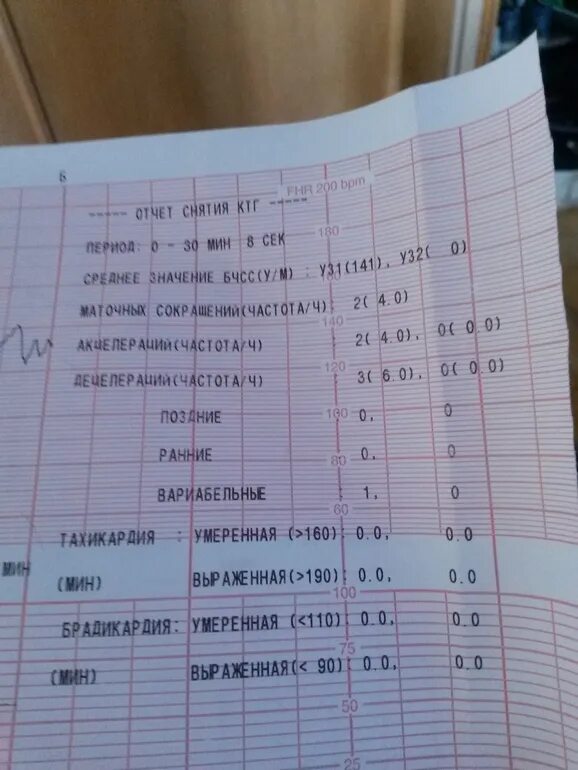 6
FHR 200 bpm
----- ОТЧЕТ СНЯТИЯ КТГ -----
180
ПЕРИОД: 0 - 30 МИН 8 СЕК
СРЕДНЕЕ ЗНАЧЕНИЕ БЧСС(У/М) : УЗ1(141), УЗ2( 0)
МАТОЧНЫХ СОКРАЩЕНИЙ(ЧАСТОТА/Ч) 2( 4.0)
140
АКЦЕЛЕРАЦИЙ(ЧАСТОТА/Ч) 2( 4.0), 0( 0.0)
120
ДЕЦЕЛЕРАЦИЙ(ЧАСТОТА/Ч) 3( 6.0), 0( 0.0)
ПОЗДНИЕ 100 0, 0
РАННИЕ 80 0, 0
ВАРИАБЕЛЬНЫЕ 1, 0
60
ТАХИКАРДИЯ : УМЕРЕННАЯ (>160): 0.0, 0.0
МИН
(МИН) ВЫРАЖЕННАЯ(>190): 0.0, 0.0
100
БРАДИКАРДИЯ: УМЕРЕННАЯ (<110): 0.0, 0.0
75
(МИН) ВЫРАЖЕННАЯ(< 90): 0.0, 0.0
50
25